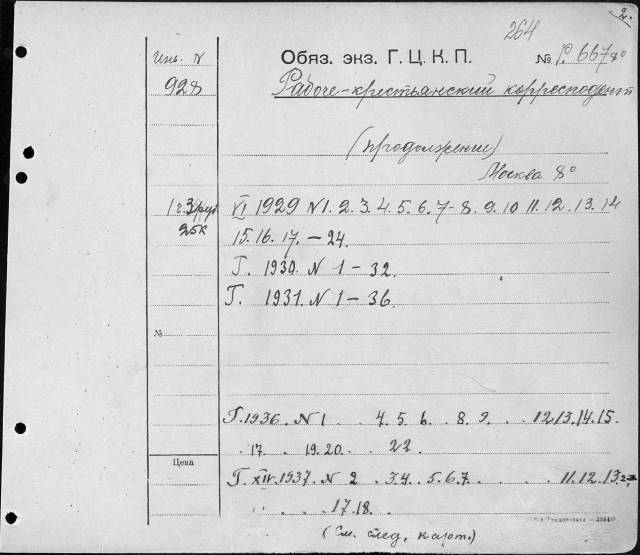 2.
264
Инв. N Обяз. экз. Г. Ц. К. П. № Р. 667 8°
928 Рабоче-крестьянский корреспондент
(продолжение)
Москва 8°
1 г. 3 руб. VI 1929 N 1. 2. 3. 4. 5. 6. 7- 8. 9. 10 11. 12. 13. 14
25к 15. 16. 17. – 24.
Г. 1930. N 1 – 32.
Г. 1931. N 1 – 36.
№
Г. 1936. N 1 4. 5. 6. 8. 9. . . 12. 13. 14. 15.
. 17. . 19. 20. . 22
Цена
Г. XIV. 1937. N 2 3. 4. 5. 6. 7. . . . 11. 12. 13.
. . . . 17. 18.
(См. след. карт.)